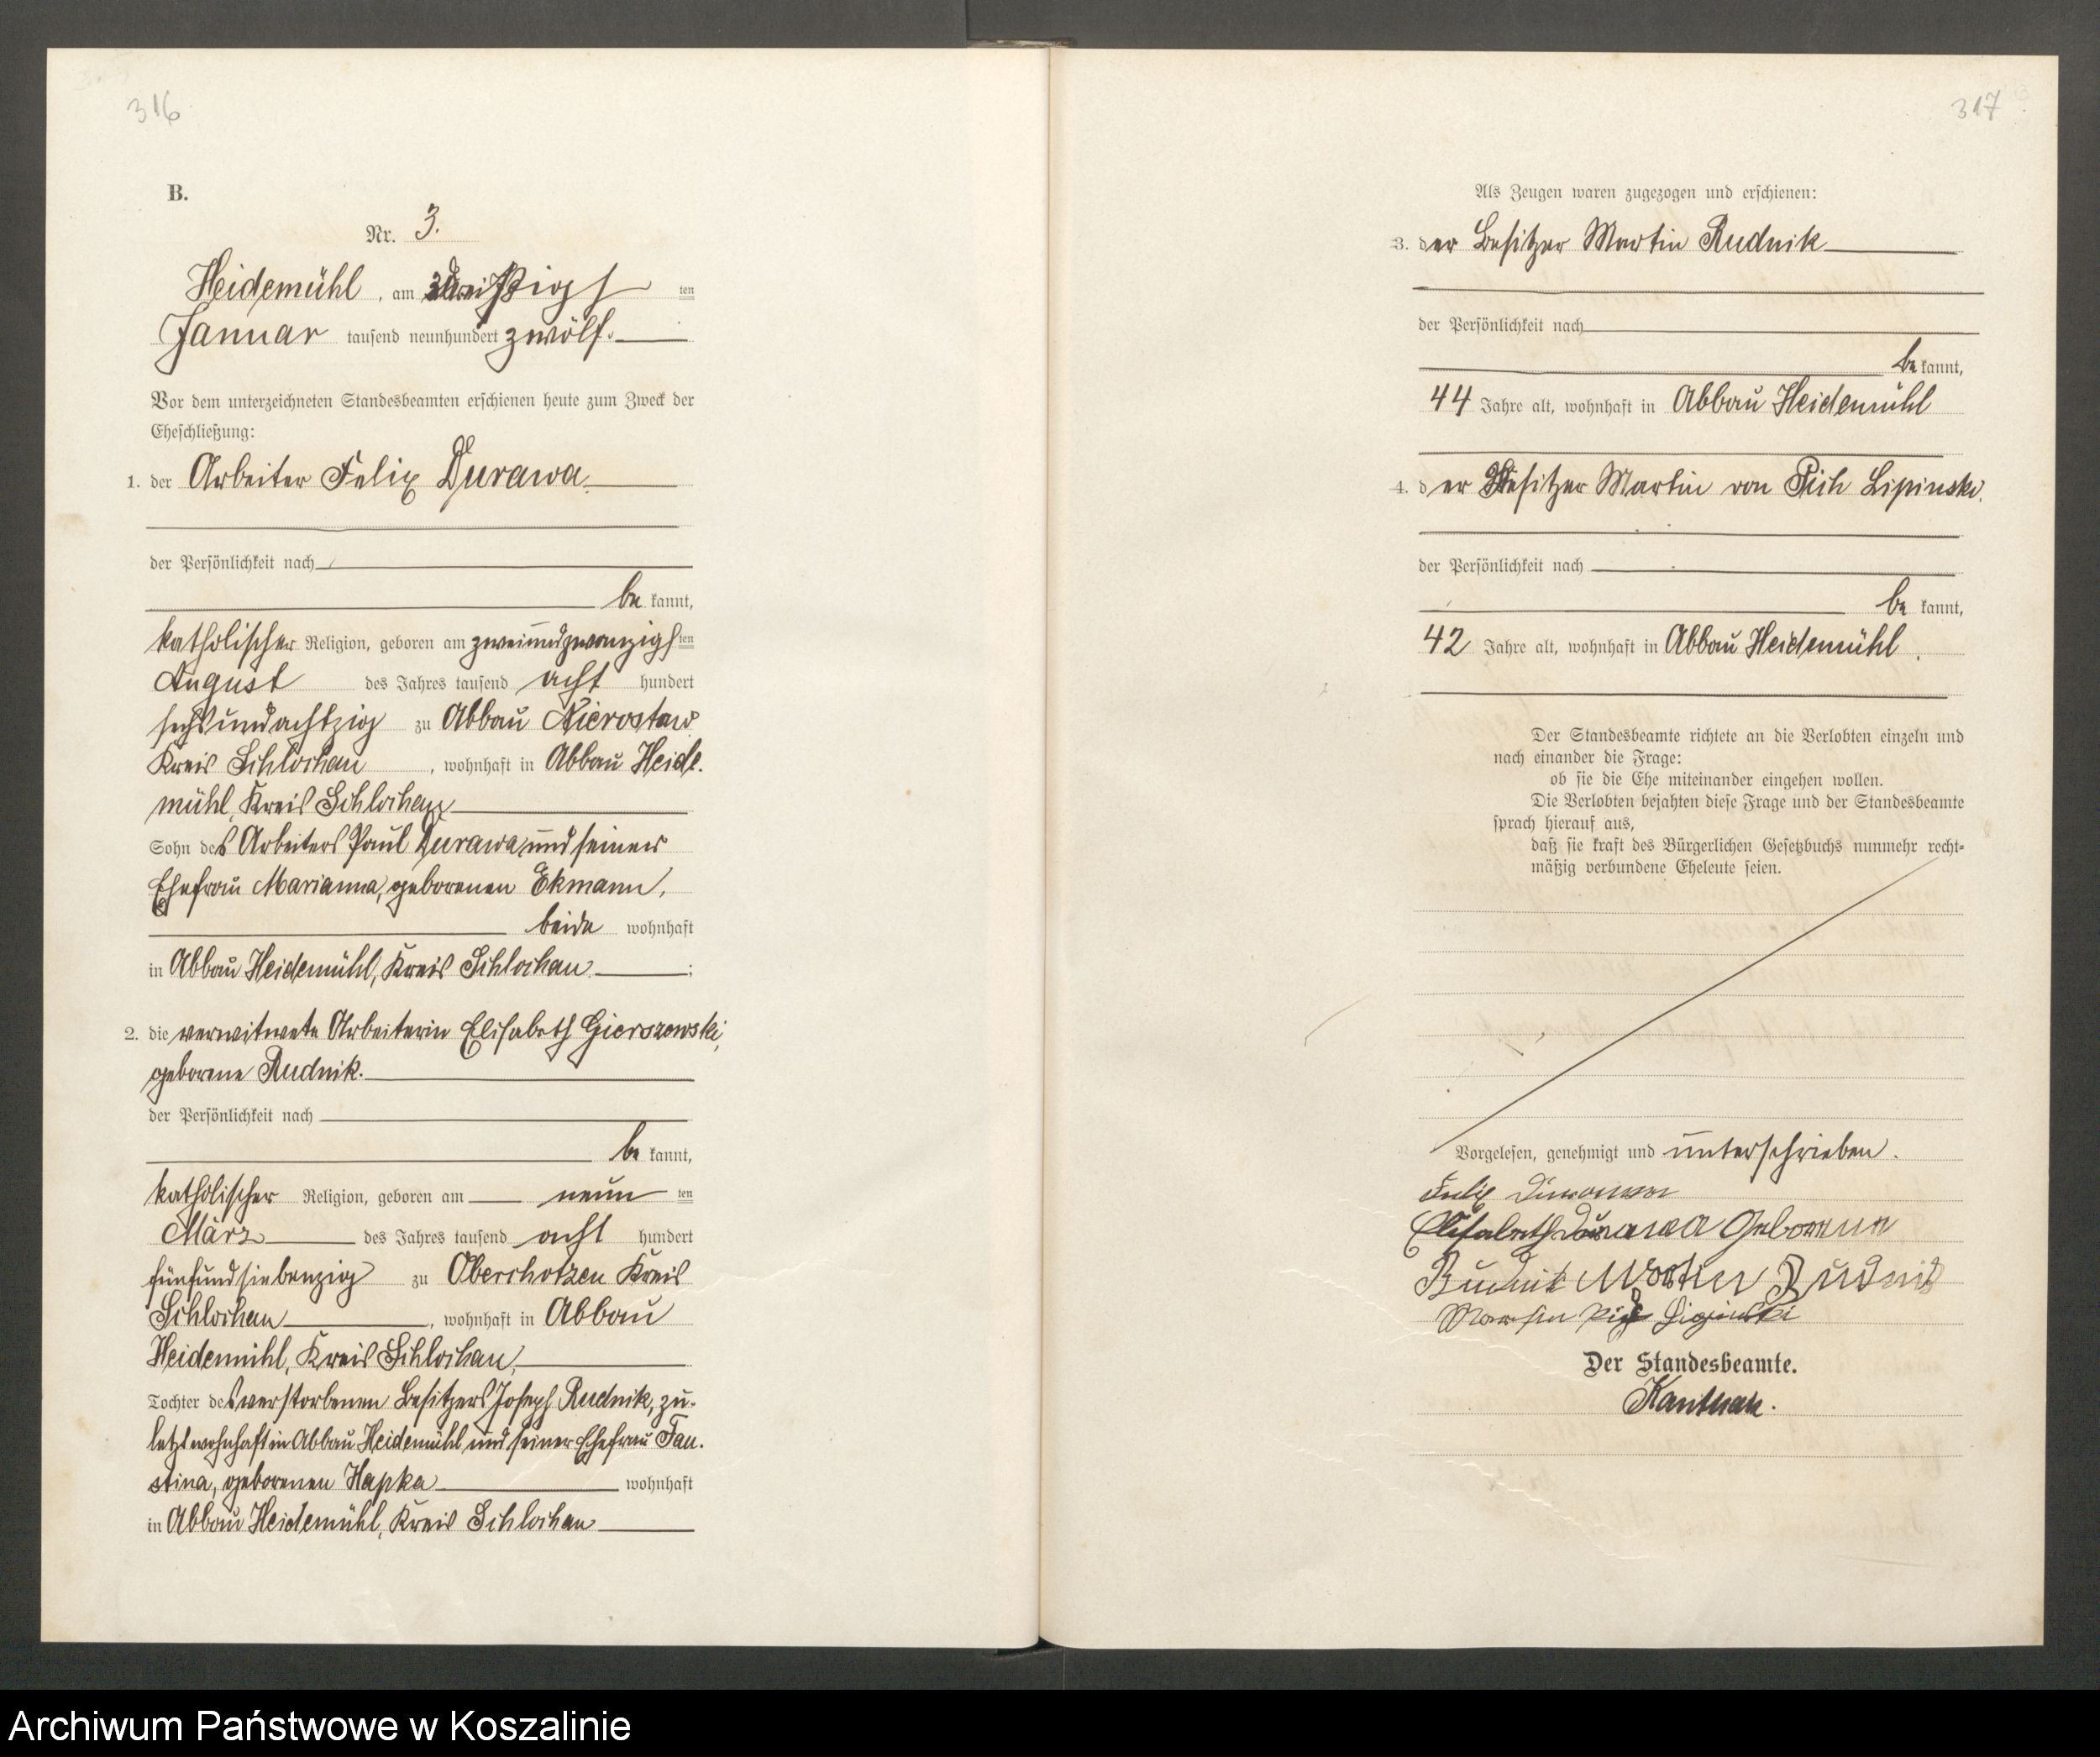 316
B.
Nr. 3.
Heidemühl, am dreißigsten
Januar tausend neunhundert zwölf.
Vor dem unterzeichneten Standesbeamten erschienen heute zum Zweck der
Eheschließung:
1. der Arbeiter Felix Durawa
der Persönlichkeit nach
be kannt,
katholischer Religion, geboren am zweiundzwanzigsten
August des Jahres tausend acht hundert
sechsundachtzig zu Abbau Nierostaw
Kreis Schlochau, wohnhaft in Abbau Heide-
mühl, Kreis Schlochau
Sohn des Arbeiters Paul Durawa und seiner
Ehefrau Marianna, geborenen Ekmann,
beide wohnhaft
in Abbau Heidemühl, Kreis Schlochau;
2. die verwitwete Arbeiterin Elisabeth Gierszewski,
geborene Rudnik.
der Persönlichkeit nach
be kannt,
katholischer Religion, geboren am neun ten
März des Jahres tausend acht hundert
fünfundsiebenzig zu Oberchotzen Kreis
Schlochau, wohnhaft in Abbau
Heidemühl, Kreis Schlochau,
Tochter des verstorbenen Besitzers Joseph Rudnik, zu-
letzt wohnhaft in Abbau Heidemühl und seiner Ehefrau Fau-
stina, geborenen Hapka wohnhaft
in Abbau Heidemühl, Kreis Schlochau
317
Als Zeugen waren zugezogen und erschienen:
3. der Besitzer Martin Rudnik
der Persönlichkeit nach
be kannt,
44 Jahre alt, wohnhaft in Abbau Heidemühl
4. der Besitzer Martin von Pich Lipinski.
der Persönlichkeit nach
be kannt,
42 Jahre alt, wohnhaft in Abbau Heidemühl.
Der Standesbeamte richtete an die Verlobten einzeln und
nach einander die Frage:
ob sie die Ehe miteinander eingehen wollen.
Die Verlobten bejahten diese Frage und der Standesbeamte
sprach hierauf aus,
daß sie kraft des Bürgerlichen Gesetzbuchs nunmehr recht-
mäßig verbundene Eheleute seien.
Vorgelesen, genehmigt und unterschrieben.
Felix Durawa
Elisabeth Durawa Geborene
Rudnik Martin Rudnik
Martin Pich Lipinski
Der Standesbeamte.
Archiwum Państwowe w Koszalinie